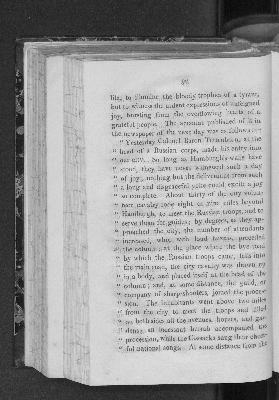 58
files, to illumine the bloody trophies of a tyrant,
but to witness the ardent expressions of unfeigned
joy, bursting from the overflowing hearts of a
grateful people. The account published of it in
the newspaper of the next day was as follows:—
" Yesterday Colonel Baron Tettenborn, at the
" head of a Russian corps, made his entry into
" our city. So long as Hamburgh's walls have
" stood, they have never witnessed such a day
" of joy; nothing but the deliverance from such
" a long and disgraceful yoke could excite a joy
" so complete. About thirty of the city volun-
" teer cavalry rode eight or nine miles beyond
" Hamburgh, to meet the Russian troops, and to
" serve them for guides; by degrees, as they ap-
" proached the city, the number of attendants
" increased, who, with loud huzzas, preceded
" the column: at the place where the bye road
" by which the Russian troops came, falls into
" the main road, the city cavalry was drawn up
" in a body, and placed itself at the head of the
" column; and, at some distance, the guild, or
" company of sharp-shooters, joined the proces-
" sion. The inhabitants went above two miles
" from the city to meet the troops and filled
" on both sides all the avenues, houses, and gar-
" dens; an incessant hurrah accompanied the
" procession, while the Cossacks sang their cheer-
" ful national songs. At some distance from the